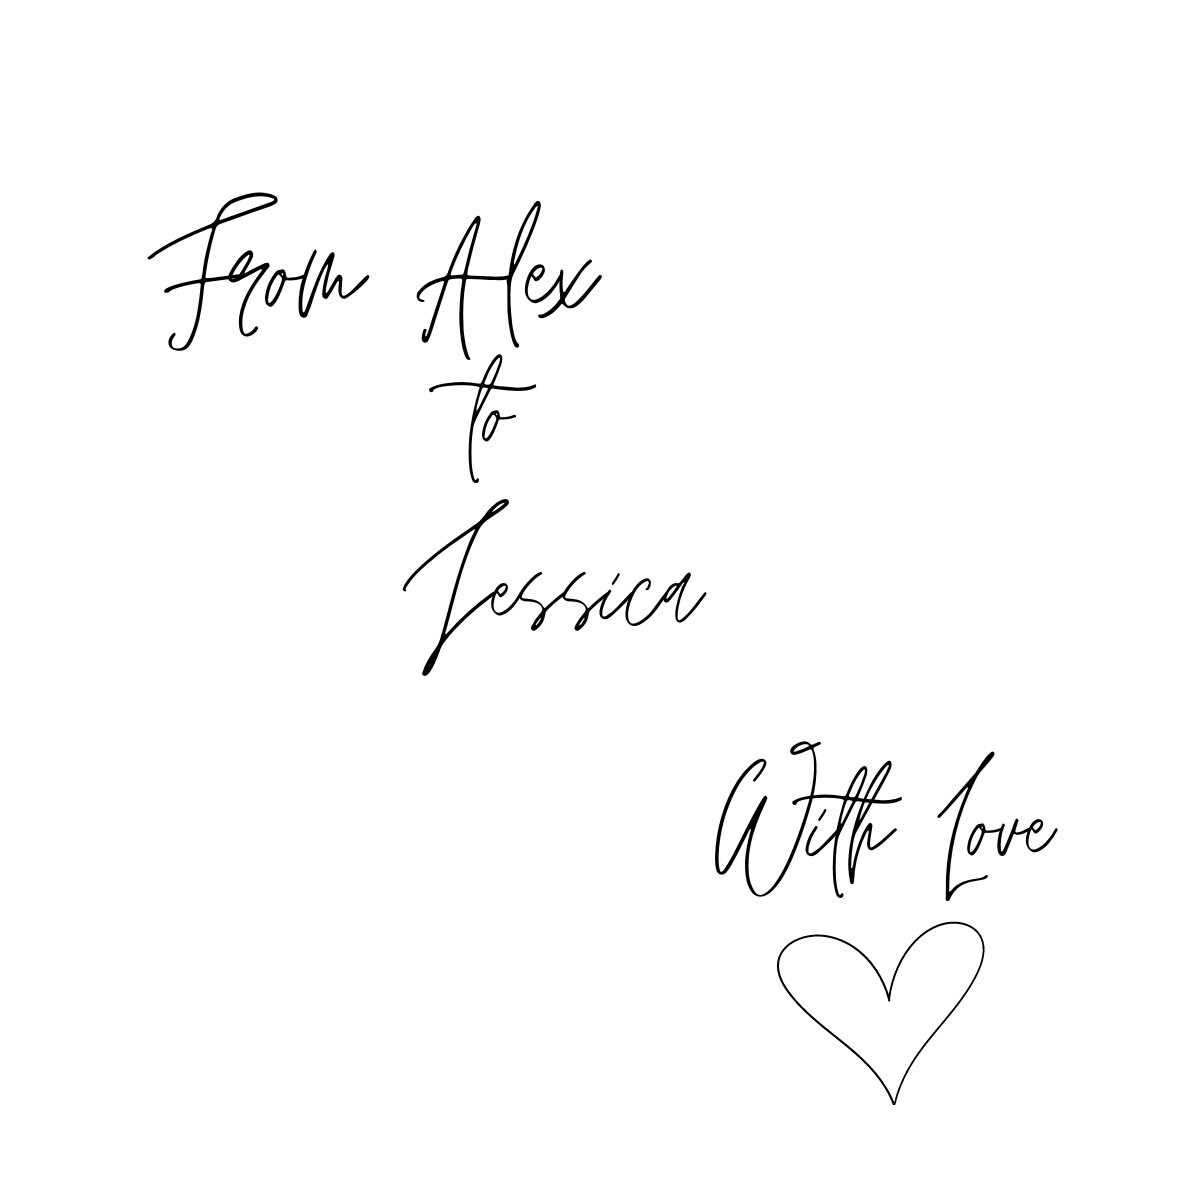 From Alex
to
Jessica
With Love